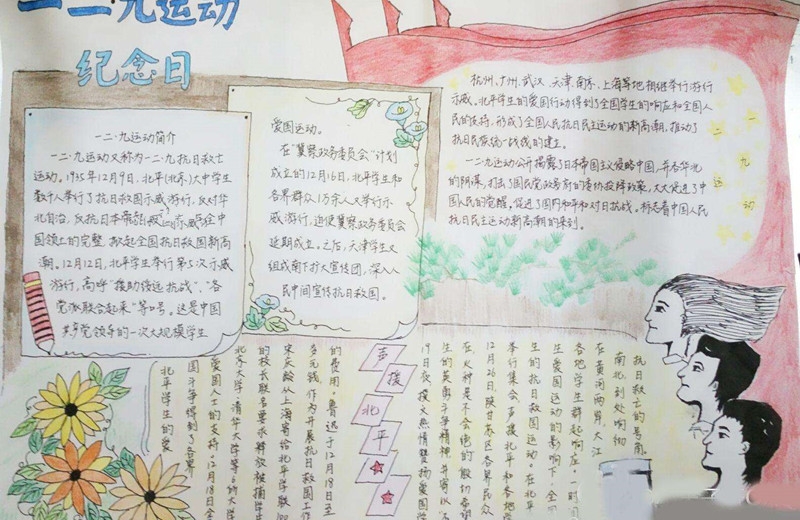 一二·九运动
纪念日
一二·九运动简介
一二·九运动又称为一二·九抗日救亡
运动。1935年12月9日,北平(北京)大中学生
数千人举行了抗日救国示威游行,反对华
北自治,反抗日本帝国
国领土的完整,掀起全国抗日救国新高
潮。12月12日,北平学生举行第5次示威
游行,高呼“援助绥远抗战”、“各
党派联合起来”等口号。这是中国
共产党领导的一次大规模学生
爱国运动。
在“冀察政务委员会”计划
成立的12月16日,北平学生和
各界群众1万余人又举行示
威游行,迫使冀察政务委员会
延期成立。之后,天津学生又
组成南下扩大宣传团,深入人
民中间宣传抗日救国。
杭州、广州、武汉、天津、南京、上海等地相继举行游行
示威。北平学生的爱国行动得到了全国学生的响应和全国人
民的支持,形成了全国人民抗日民主运动的新高潮,推动了
抗日民族统一战线的建立。
一二·九运动公开揭露了日本帝国主义侵略中国,并吞华北
的阴谋,打击了国民党政府的妥协投降政策,大大促进了中
国人民的觉醒,促进了国内和平和对日抗战。标志着中国人民
抗日民主运动新高潮的来到。
一二九运动
抗日救亡的号角
南北到处响彻
在黄河两岸、大江
各地学生群起响应,一时间
生爱国运动的影响下,全
生的抗日救国运动。在北平
举行集会,声援北平和各地学
12月26日,陕甘苏区各界民众
在火种是不会熄的殷切希望
生的英勇斗争精神,并寄以
19日夜撰文热情赞扬爱国学
声援北平
的费用。鲁迅于12月18日至
多元钱作为开展抗日救国工作
宋庆龄从上海寄给北平学联
的校长联名要求释放被捕学生
北京大学、清华大学等6所大学
爱国人士的支持。12月18日全
国斗争得到了各界
北平学生的爱